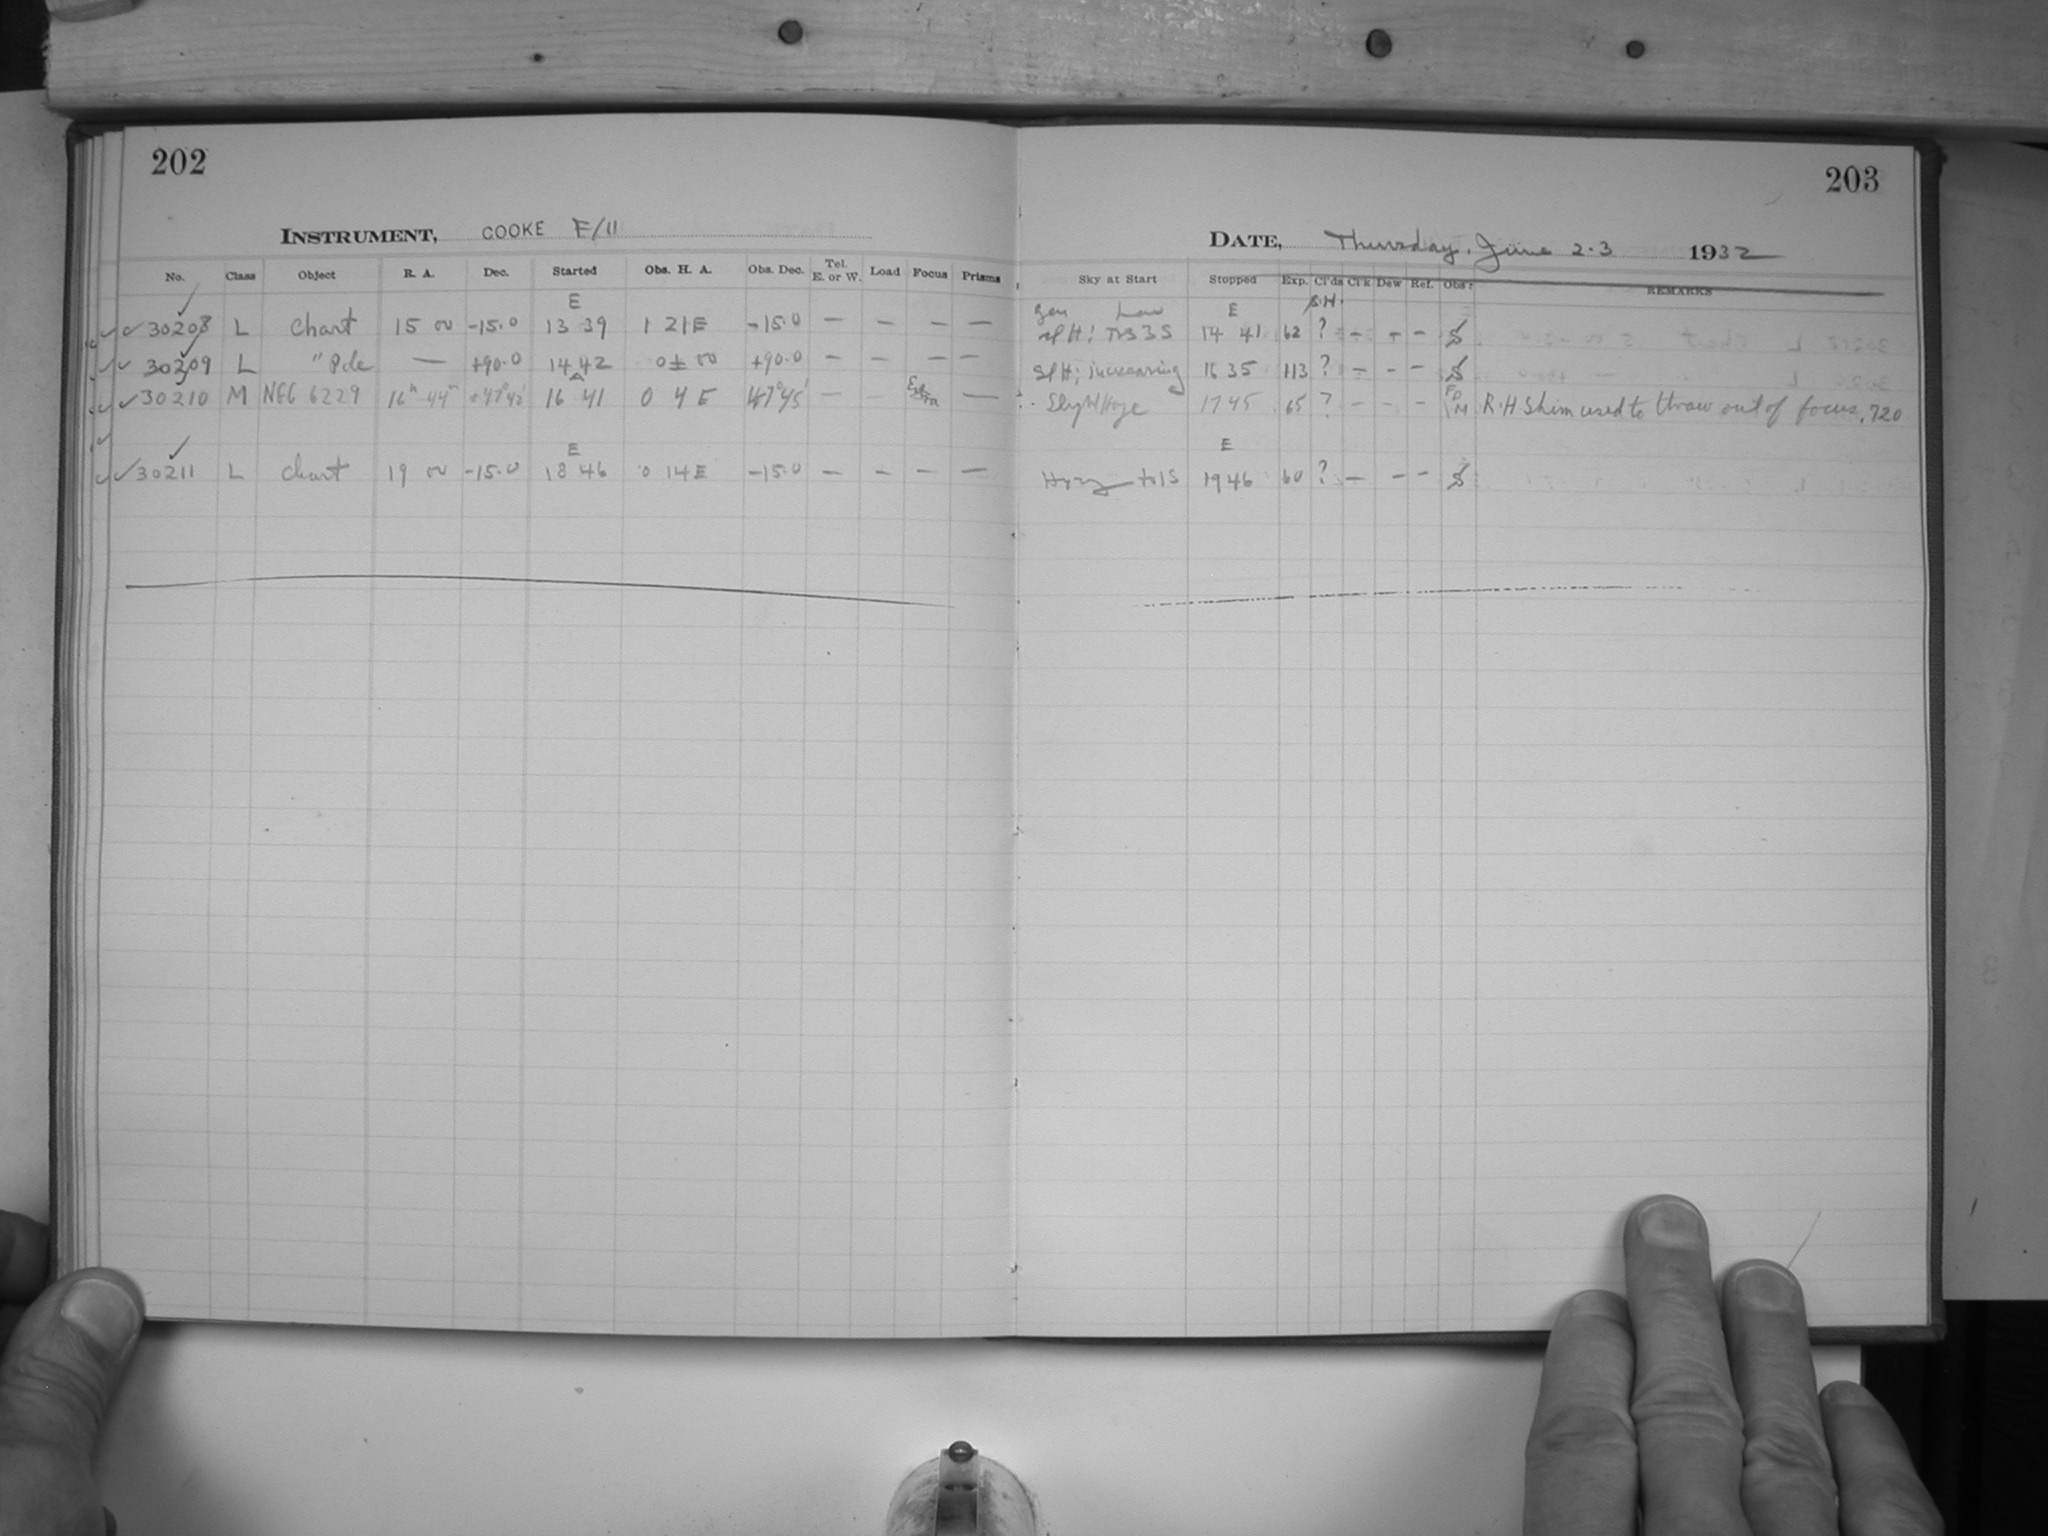 202
INSTRUMENT, COOKE F/11
No. Class Object R. A. Dec. Started Obs. H. A. Obs. Dec. Tel. E. or W. Load Focus Prisms
E
30208 L Chart 15 00 -15.0 13 39 1 21E -15.0 — — — —
30209 L " Pole — +90.0 14 42 0± 00 +90.0 — — — —
30210 M NGC 6229 16h 44m +47°42' 16 41 0 4 E +47°45' — — Extra —
E
30211 L Chart 19 00 -15.0 18 46 0 14E -15.0 — — — —
203
DATE, Thursday, June 2-3 1932
Sky at Start Stopped Exp. Cl'ds Cl'k Dew Ref. Obs'r REMARKS
Gen Low E S.H.
Sl H; 14 41 62 ? — — — S
Sl H; increasing 16 35 113 ? — — — S
Slight Haze 17 45 65 ? — — — M R.H Shim used to throw out of focus, .720
E
Hazy to 15 19 46 60 ? — — — S